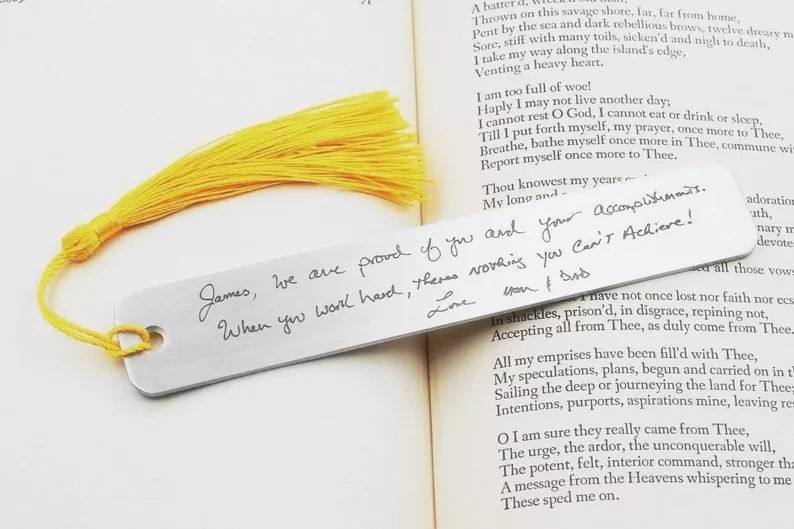 A batter'd,
Thrown on this savage shore, far, far from home,
Pent by the sea and dark rebellious brows, twelve dreary
Sore, stiff with many toils, sicken'd and nigh to death,
I take my way along the island's edge,
Venting a heavy heart.
I am too full of woe!
Haply I may not live another day;
I cannot rest O God, I cannot eat or drink or sleep,
Till I put forth myself, my prayer, once more to Thee,
Breathe, bathe myself once more in Thee, commune
Report myself once more to Thee.
Thou knowest my years
My long and
James, We are proud of you and your accomplishments.
When you work hard, theres nothing you Can't Achieve!
Love Mom & DAD
all those vows
I have not once lost nor faith nor
In shackles, prison'd, in disgrace, repining not,
Accepting all from Thee, as duly come from Thee.
All my emprises have been fill'd with Thee,
My speculations, plans, begun and carried on in
Sailing the deep or journeying the land for Thee;
Intentions, purports, aspirations mine, leaving
O I am sure they really came from Thee,
The urge, the ardor, the unconquerable will,
The potent, felt, interior command, stronger
A message from the Heavens whispering to me
These sped me on.